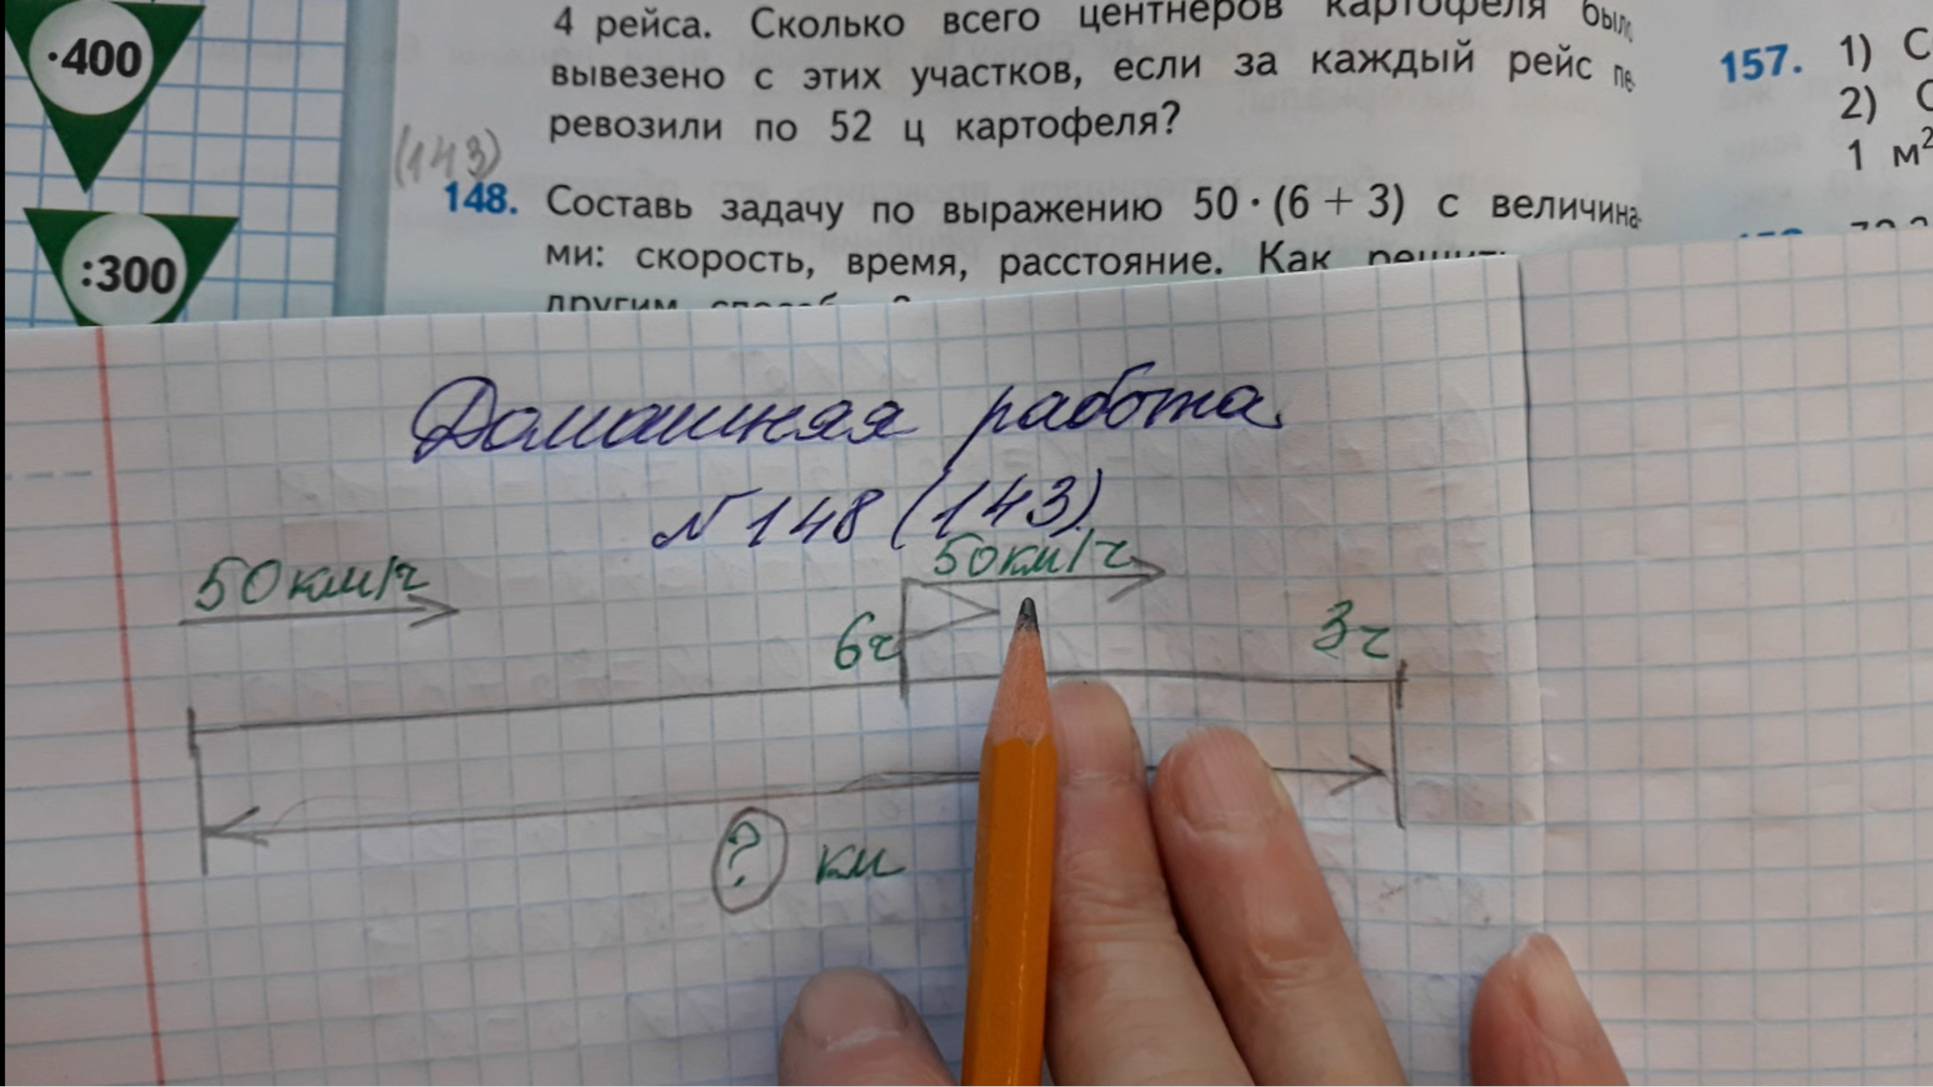 ·400
:300
4 рейса. Сколько всего центнеров картофеля
вывезено с этих участков, если за каждый рейс пе-
ревозили по 52 ц картофеля?
(143)
148. Составь задачу по выражению 50 · (6 + 3) с величина-
ми: скорость, время, расстояние. Как
другим
157. 1)
2)
1 м²
Домашняя работа.
№148 (143).
50км/ч
50км/ч
6ч
3ч
? км